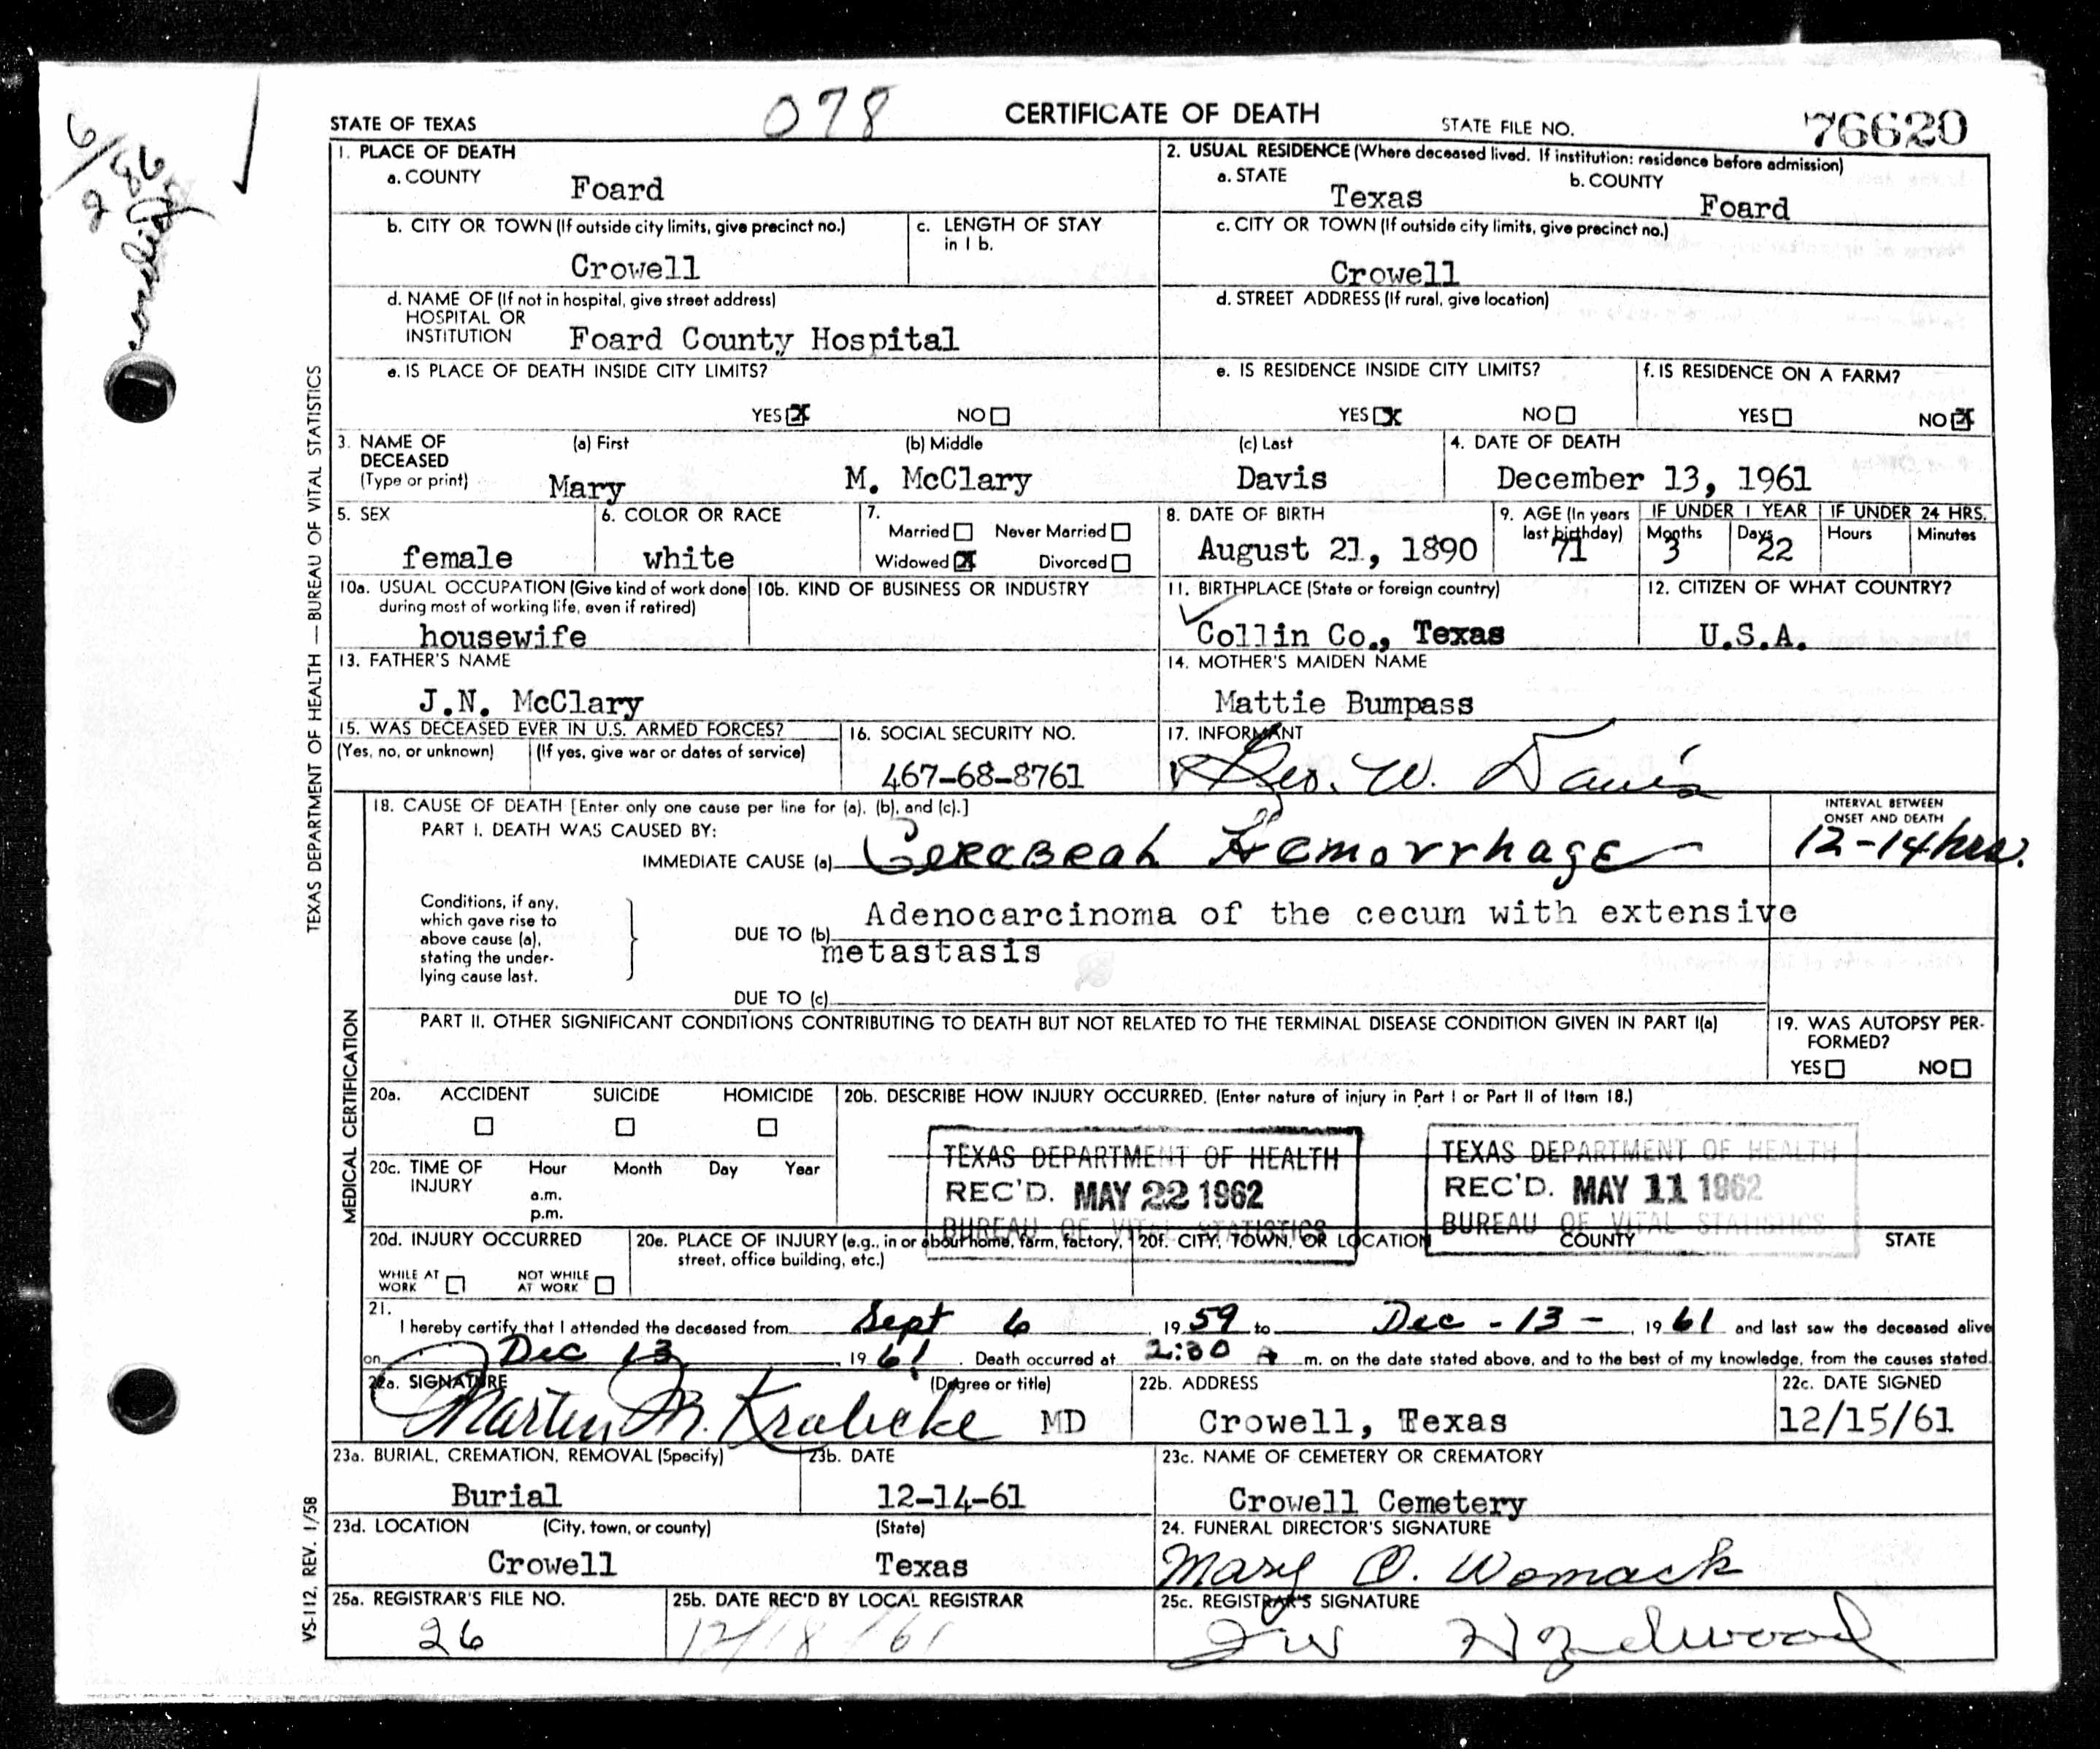 STATE OF TEXAS
078
CERTIFICATE OF DEATH
STATE FILE NO. 76620
1. PLACE OF DEATH
a. COUNTY
Foard
2. USUAL RESIDENCE (Where deceased lived. If institution: residence before admission)
a. STATE
Texas
b. COUNTY
Foard
b. CITY OR TOWN (If outside city limits, give precinct no.)
Crowell
c. LENGTH OF STAY
in 1 b.
c. CITY OR TOWN (If outside city limits, give precinct no.)
Crowell
d. NAME OF (If not in hospital, give street address)
HOSPITAL OR
INSTITUTION
Foard County Hospital
d. STREET ADDRESS (If rural, give location)
e. IS PLACE OF DEATH INSIDE CITY LIMITS?
YES X NO
e. IS RESIDENCE INSIDE CITY LIMITS?
YES X NO
f. IS RESIDENCE ON A FARM?
YES NO X
3. NAME OF
DECEASED
(Type or print)
(a) First
Mary
(b) Middle
M. McClary
(c) Last
Davis
4. DATE OF DEATH
December 13, 1961
5. SEX
female
6. COLOR OR RACE
white
7.
Married Never Married
Widowed X Divorced
8. DATE OF BIRTH
August 21, 1890
9. AGE (In years
last birthday)
71
IF UNDER 1 YEAR
Months Days
3 22
IF UNDER 24 HRS.
Hours Minutes
10a. USUAL OCCUPATION (Give kind of work done
during most of working life, even if retired)
housewife
10b. KIND OF BUSINESS OR INDUSTRY
11. BIRTHPLACE (State or foreign country)
Collin Co., Texas
12. CITIZEN OF WHAT COUNTRY?
U.S.A.
13. FATHER'S NAME
J.N. McClary
14. MOTHER'S MAIDEN NAME
Mattie Bumpass
15. WAS DECEASED EVER IN U.S. ARMED FORCES?
(Yes, no, or unknown) (If yes, give war or dates of service)
16. SOCIAL SECURITY NO.
467-68-8761
17. INFORMANT
Geo. W. Davis
18. CAUSE OF DEATH [Enter only one cause per line for (a), (b), and (c).]
PART I. DEATH WAS CAUSED BY:
IMMEDIATE CAUSE (a) Cerebral Hemorrhage
INTERVAL BETWEEN
ONSET AND DEATH
12-14 hrs.
Conditions, if any,
which gave rise to
above cause (a),
stating the under-
lying cause last.
DUE TO (b) Adenocarcinoma of the cecum with extensive
metastasis
DUE TO (c)
PART II. OTHER SIGNIFICANT CONDITIONS CONTRIBUTING TO DEATH BUT NOT RELATED TO THE TERMINAL DISEASE CONDITION GIVEN IN PART I(a)
19. WAS AUTOPSY PER-
FORMED?
YES NO
20a. ACCIDENT SUICIDE HOMICIDE
20b. DESCRIBE HOW INJURY OCCURRED. (Enter nature of injury in Part I or Part II of Item 18.)
TEXAS DEPARTMENT OF HEALTH
REC'D. MAY 22 1962
BUREAU OF VITAL STATISTICS
TEXAS DEPARTMENT OF HEALTH
REC'D. MAY 11 1962
BUREAU OF VITAL STATISTICS
20c. TIME OF
INJURY
Hour Month Day Year
a.m.
p.m.
20d. INJURY OCCURRED
WHILE AT
WORK
NOT WHILE
AT WORK
20e. PLACE OF INJURY (e.g., in or about home, farm, factory,
street, office building, etc.)
20f. CITY, TOWN, OR LOCATION COUNTY STATE
21.
I hereby certify that I attended the deceased from Sept 6, 1959 to Dec - 13 -, 1961 and last saw the deceased alive
on Dec 13, 1961. Death occurred at 2:30 A m. on the date stated above, and to the best of my knowledge, from the causes stated.
22a. SIGNATURE (Degree or title)
Martin M. Kralicke MD
22b. ADDRESS
Crowell, Texas
22c. DATE SIGNED
12/15/61
23a. BURIAL, CREMATION, REMOVAL (Specify)
Burial
23b. DATE
12-14-61
23c. NAME OF CEMETERY OR CREMATORY
Crowell Cemetery
23d. LOCATION (City, town, or county) (State)
Crowell Texas
24. FUNERAL DIRECTOR'S SIGNATURE
Mary O. Womack
25a. REGISTRAR'S FILE NO.
26
25b. DATE REC'D BY LOCAL REGISTRAR
12/18/61
25c. REGISTRAR'S SIGNATURE
TEXAS DEPARTMENT OF HEALTH — BUREAU OF VITAL STATISTICS
MEDICAL CERTIFICATION
VS-112. REV. 1/58